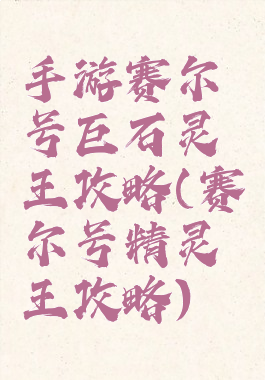 手游赛尔
号巨石灵
王攻略(赛
尔号精灵
王攻略)